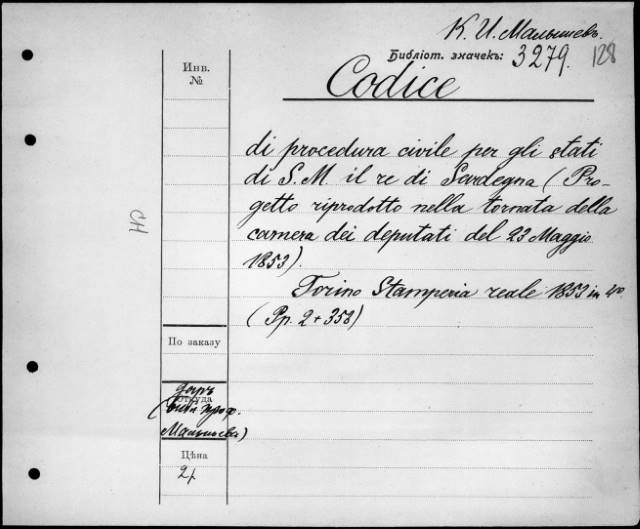 К. И. Малышевъ.
Библіот. значекъ: 3279. 128
Инв.
№
Codice
di procedura civile per gli stati
di S. M. il re di Sardegna (Pro-
getto riprodotto nella tornata della
camera dei deputati del 23 Maggio
1853).
Torino Stamperia reale 1853 in 4º
(Pp. 2 + 358)
СН
По заказу
Откуда
даръ
(библ. проф.
Малышева)
Цѣна
2 р